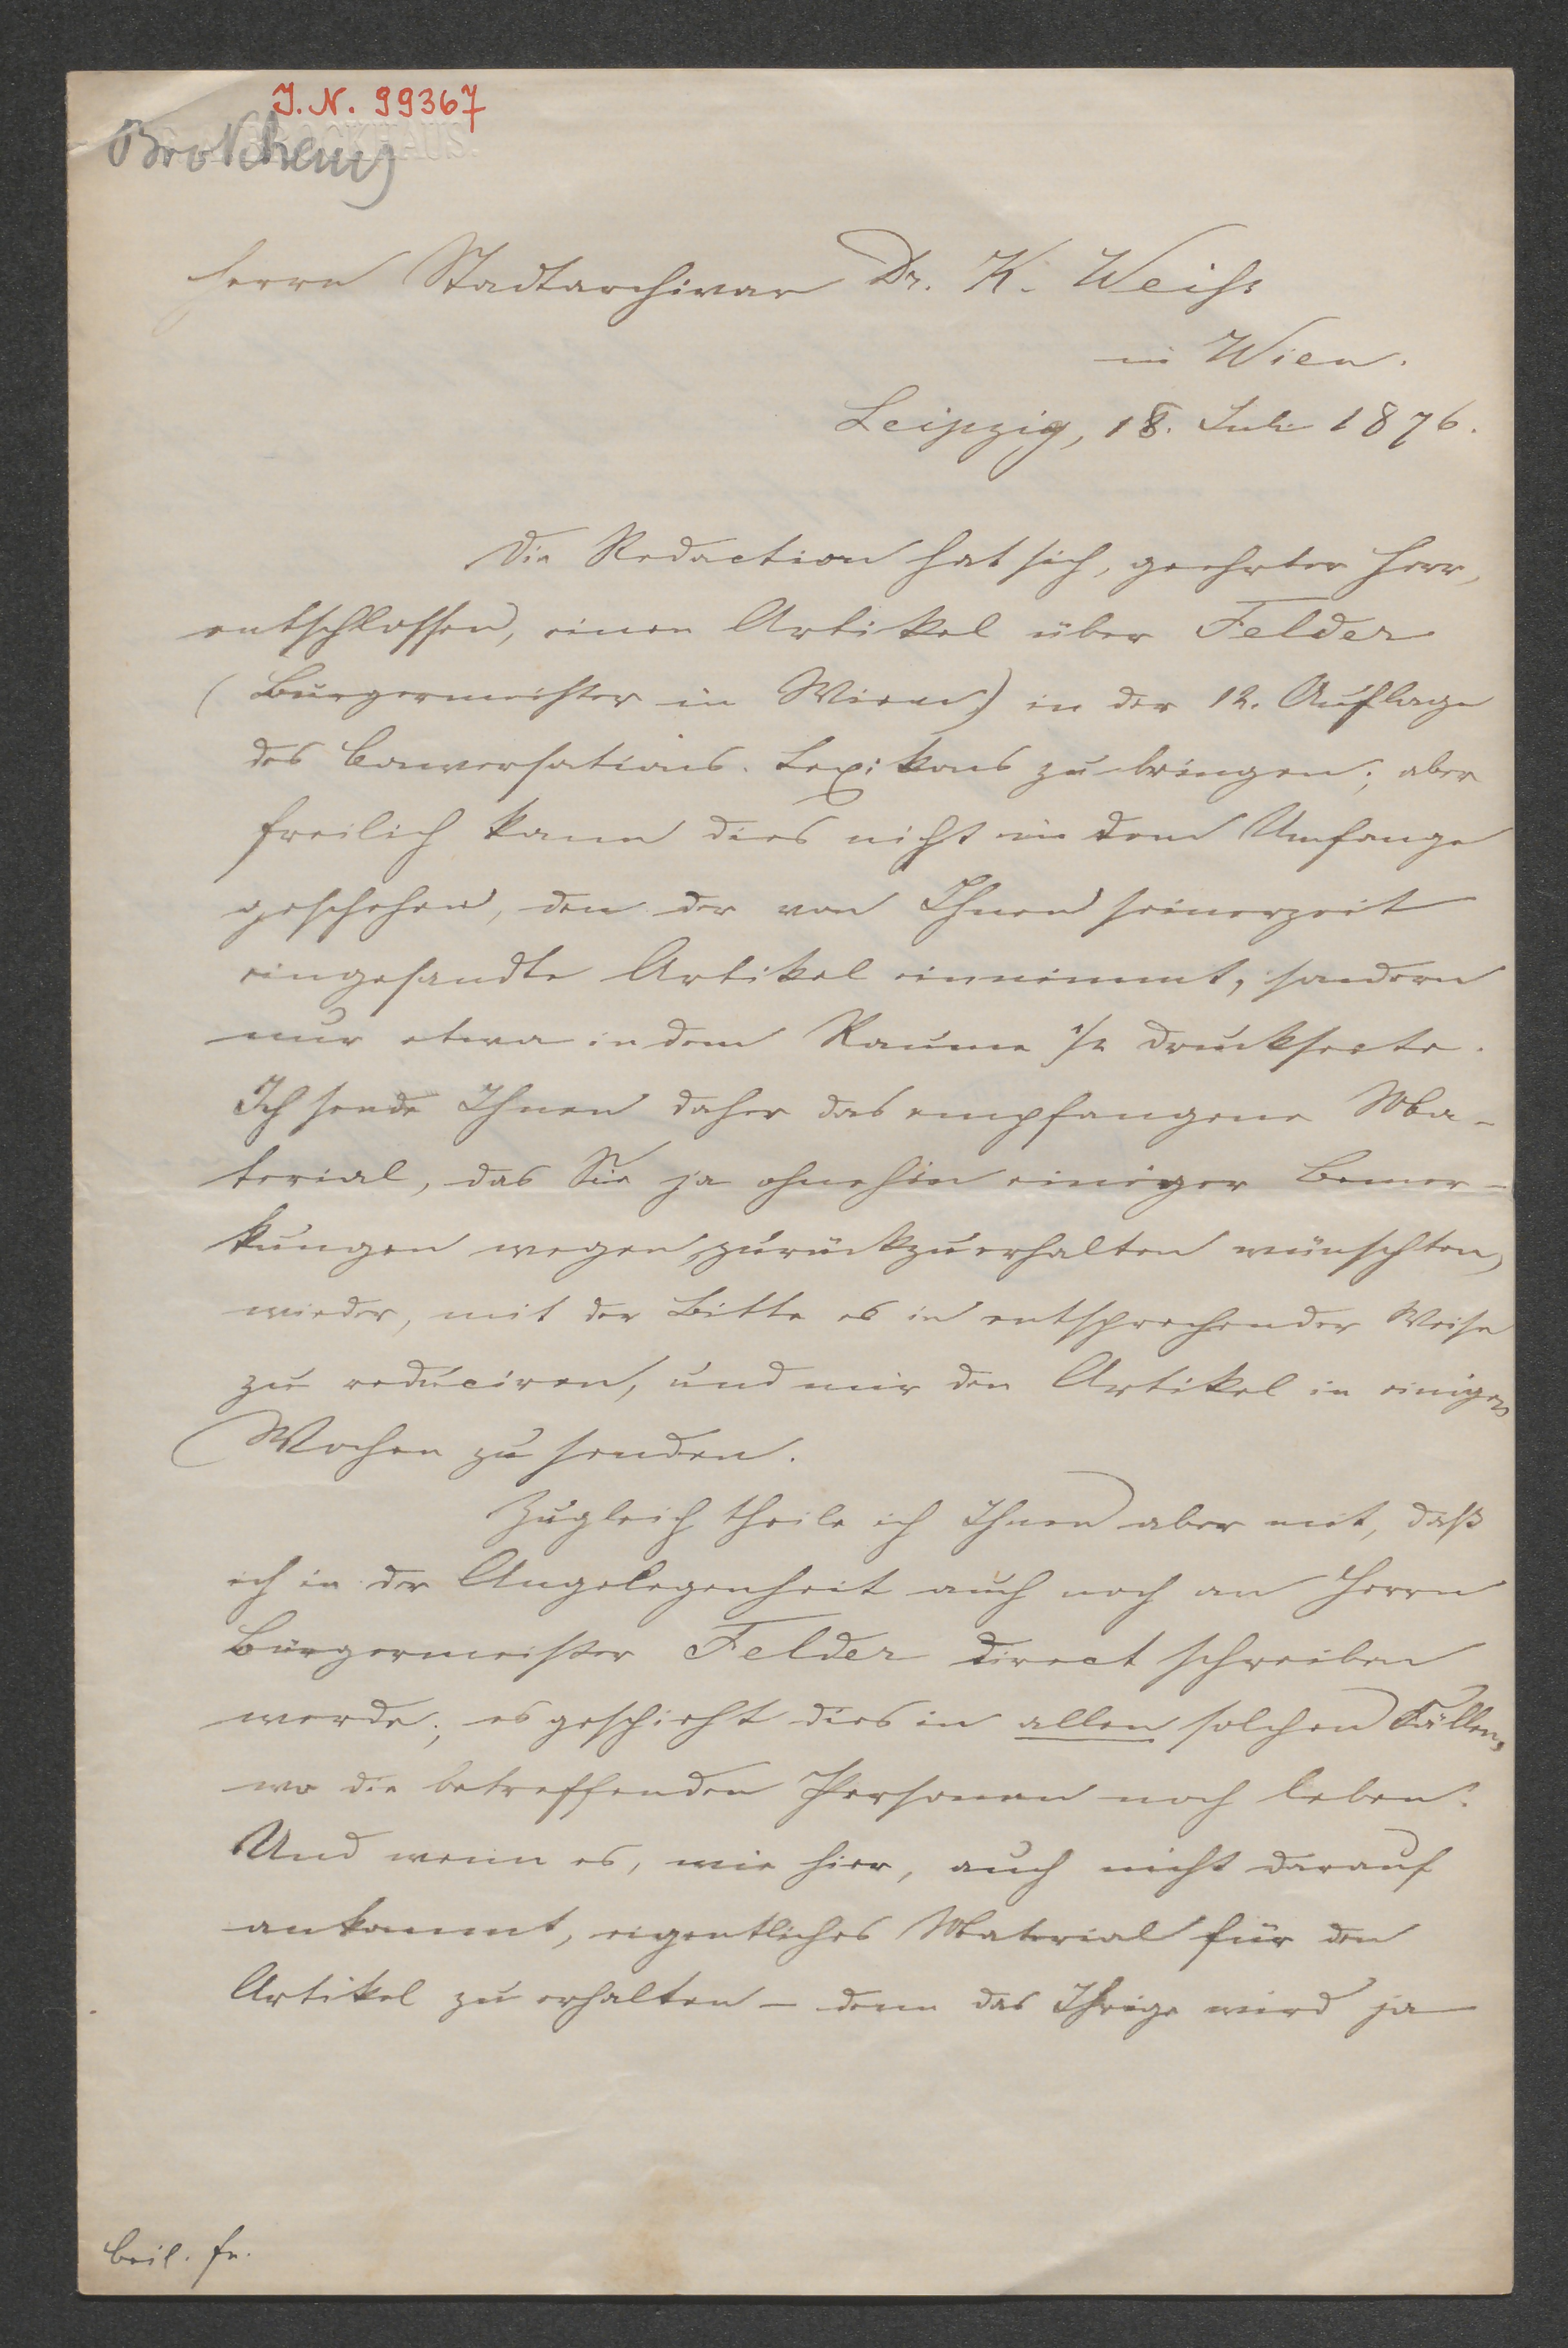 J. N. 99367
BROCKHAUS.
Brockhaus
Herrn Stadtarchivar Dr. K. Weiss
in Wien.
Leipzig, 18. Juli 1876.
Die Redaction hat sich, geehrter Herr,
entschlossen, einen Artikel über Felder
(Bürgermeister in Wien) in der 12. Auflage
des Conversations-Lexikons zu bringen; aber
freilich kann dies nicht in dem Umfange
geschehen, den der von Ihnen seinerzeit
eingesandte Artikel einnimmt, sondern
nur etwa in dem Raume 1/2 Druckseite.
Ich sende Ihnen daher das empfangene Ma-
terial, das Sie ja ohnehin einiger Bemer-
kungen wegen zurückzuerhalten wünschten,
wieder, mit der Bitte es in entsprechender Weise
zu reduciren, und mir den Artikel in einigen
Wochen zu senden.
Zugleich theile ich Ihnen aber mit, daß
ich in der Angelegenheit auch noch an Herrn
Bürgermeister Felder direct schreiben
werde; es geschieht dies in allen solchen Fällen,
wo die betreffenden Personen noch leben.
Und wenn es, wie hier, auch nicht darauf
ankommt, eigentliches Material für den
Artikel zu erhalten – denn das Ihrige wird ja
beil. fr.